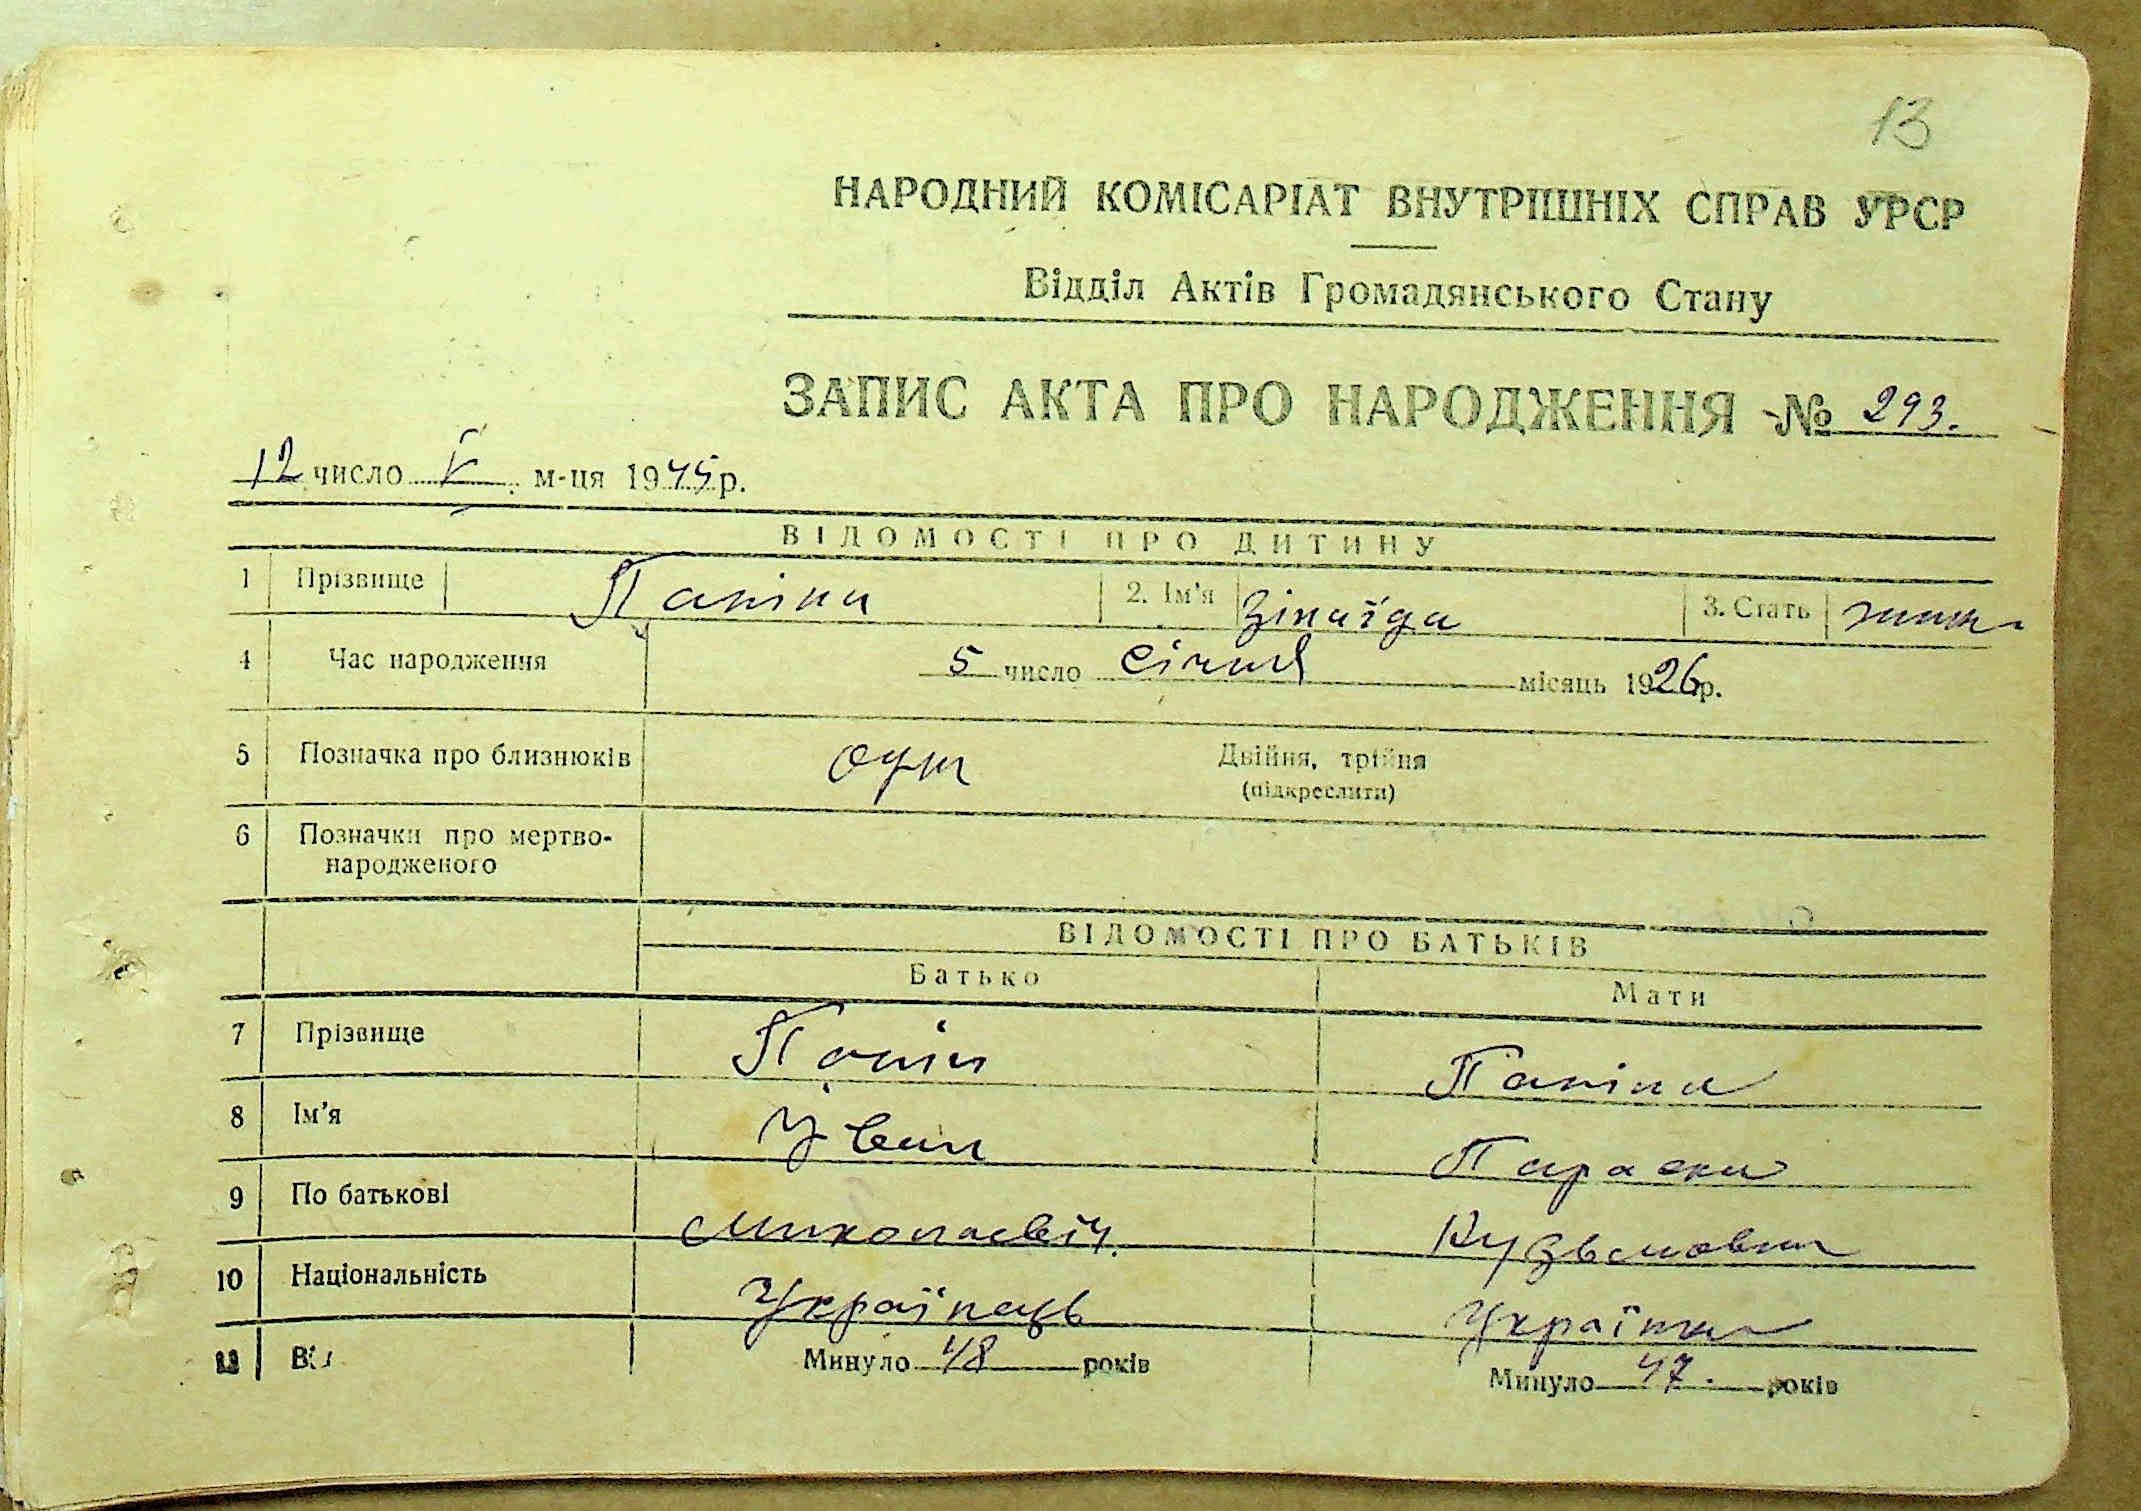 13
НАРОДНИЙ КОМІСАРІАТ ВНУТРІШНІХ СПРАВ УРСР
Відділ Актів Громадянського Стану
ЗАПИС АКТА ПРО НАРОДЖЕННЯ № 293.
12 число V м-ця 1945 р.
ВІДОМОСТІ ПРО ДИТИНУ
1 Прізвище Паніна 2. Ім'я Зінаїда 3. Стать жіноч
4 Час народження 5 число січня місяць 1926 р.
5 Позначка про близнюків Двійня, трійня
(підкреслити)
6 Позначки про мертво-
народженого
ВІДОМОСТІ ПРО БАТЬКІВ
Батько Мати
7 Прізвище Панін Паніна
8 Ім'я Іван Параска
9 По батькові Миколаєвіч. Кузьмовна
10 Національність Українець Українка
11 Вік Минуло 48 років Минуло 47. років